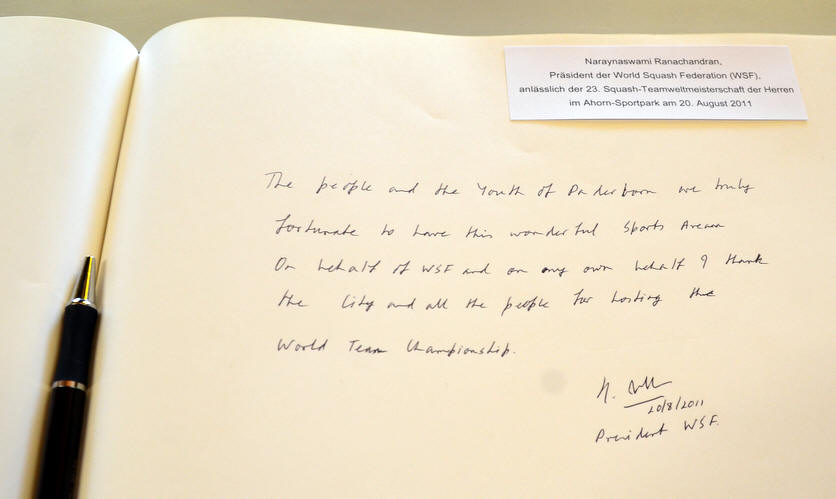 Naraynaswami Ranachandran,
Präsident der World Squash Federation (WSF),
anlässlich der 23. Squash-Teamweltmeisterschaft der Herren
im Ahorn-Sportpark am 20. August 2011
The people and the Youth of Paderborn are truly
fortunate to have this wonderful Sports Arena
On behalf of WSF and on my own behalf I thank
the City and all the people for hosting the
World Team Championship.
N.
20/8/2011
President WSF.